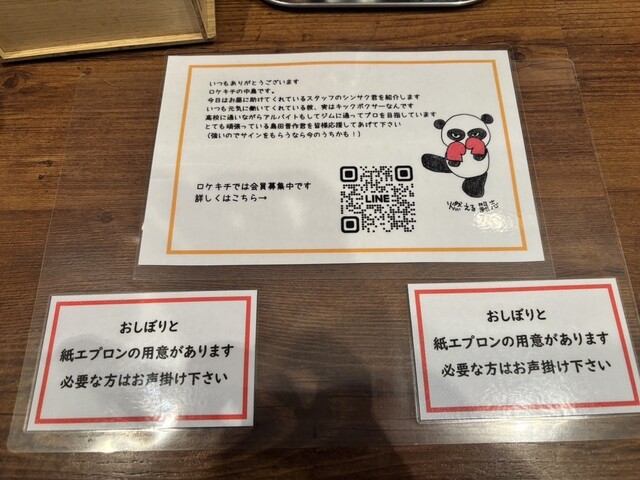 いつもありがとうございます
ロケキチの中島です。
今日はお昼に助けてくれているスタッフのシンサク君を紹介します
いつも元気に働いてくれている彼、実はキックボクサーなんです
高校に通いながらアルバイトもしてジムに通ってプロを目指しています
とても頑張っている島田晋作君を皆様応援してあげて下さい
（強いのでサインをもらうなら今のうちかも！）
ロケキチでは会員募集中です
詳しくはこちら→
LINE
燃える闘志
おしぼりと
紙エプロンの用意があります
必要な方はお声掛け下さい
おしぼりと
紙エプロンの用意があります
必要な方はお声掛け下さい